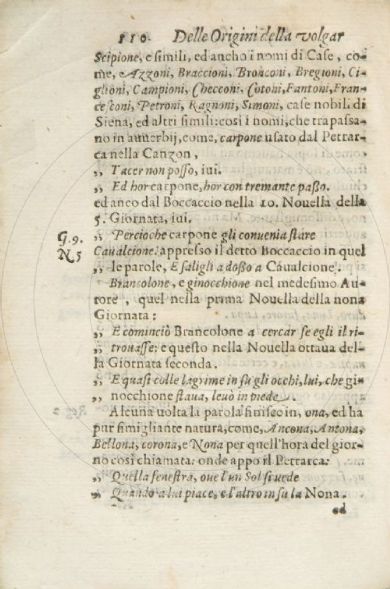 110. Delle Origini della volgar
Scipione, e simili, ed ancho i nomi di Case, co-
me, Azzoni, Braccioni, Bronconi, Bregioni, Ci-
glioni, Campioni, Checconi. Cotoni, Fantoni, Fran-
cesconi, Petroni, Ragnoni, Simoni, case nobili di
Siena, ed altri simili: così i nomi, che trapassa-
no in auuerbij, come, carpone usato dal Petrar-
ca nella Canzon,
„ Tacer non posso, iui.
„ Ed hor carpone, hor con tremante passo.
ed anco dal Boccaccio nella 10. Nouella della
5. Giornata, iui.
G. 9. „ Percioche carpone gli conuenia stare
N. 5 Caualcione: appresso il detto Boccaccio in quel
„ le parole, E saligli a dosso a Caualcione.
Brancolone, e ginocchione nel medesimo Au-
tore, quel nella prima Nouella della nona
Giornata:
„ E cominciò Brancolone a cercar se egli il ri-
„ trouasse: e questo nella Nouella ottaua del-
la Giornata seconda.
„ E quasi colle lagrime in su gli occhi, lui, che gi-
„ nocchione staua, leuò in piede.
Alcuna uolta la parola finisce in, ona, ed ha
pur simigliante natura, come, Ancona, Antona,
Bellona, corona, e Nona per quell'hora del gior-
no così chiamata: onde appo il Petrarca:
„ Quella fenestra, oue l'un Sol si uede
„ Quando a lui piace, e l'altro in su la Nona.
ed